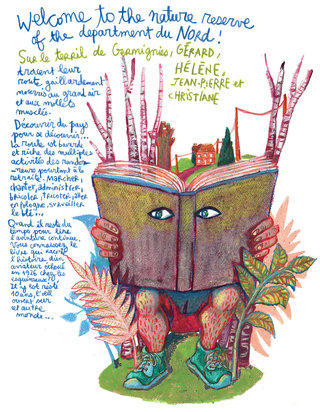 Welcome to the nature reserve
of the department du Nord !
Sur le terril de Germignies, GÉRARD,
HÉLÈNE,
JEAN-PIERRE et
CHRISTIANE
tracent leur
route, gaillardement
nourris au grand air
et aux mollets
musclés.
Découvrir du pays
pour se découvrir...
La route est bavarde
et riche des multiples
activités des randon-
-neurs pourtant à la
retraite. MARCHER,
chanter, administrer,
bricoler, TRICOTER, aller
en Pologne, surveiller
le blé...
Quand il reste du
temps pour lire
l'aventure continue.
Vous connaissez le
livre qui raconte
l'histoire d'un
amateur échoué
en 1926 chez les
esquimaux ?
Il y est resté
10 ans, c'est
sur
et autre
monde...